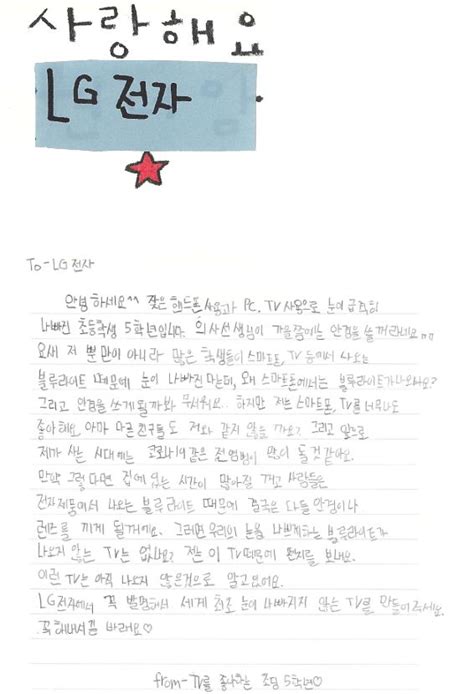 사랑해요
LG 전자
To-LG전자
안녕하세요^^ 잦은 핸드폰 사용과 PC, TV 사용으로 눈이 급격히
나빠진 초등학생 5학년입니다. 의사선생님이 가을쯤에는 안경을 쓸꺼라네요ㅠㅠ
요새 저 뿐만이 아니라 많은 학생들이 스마트폰, TV 등에서 나오는
블루라이트 때문에 눈이 나빠진다는데, 왜 스마트폰에서는 블루라이트가 나오나요?
그리고 안경을 쓰게 될까봐 무서워요.. 하지만 저는 스마트폰, TV를 너무나도
좋아해요. 아마 다른친구들도 저와 같지 않을까요? 그리고 앞으로
제가 사는 시대에는 코로나19같은 전염병이 많이 돌것 같아요.
만약 그렇다면 집에 있는 시간이 많아질 꺼고 사람들은
전자제품에서 나오는 블루라이트 때문에 결국은 다들 안경이나
렌즈를 끼게 될거에요. 그러면 우리의 눈을 나쁘게하는 블루라이트가
나오지 않는 TV는 없나요? 저는 이 TV때문에 편지를 보내요.
이런 TV는 아직 나오지 않은것으로 알고있어요.
LG전자에서 꼭 발명해서 세계 최초 눈이 나빠지지 않는 TV를 만들어주세요.
꼭 해내시길 바래요♡
from-TV를 좋아하는 초딩 5학년♡